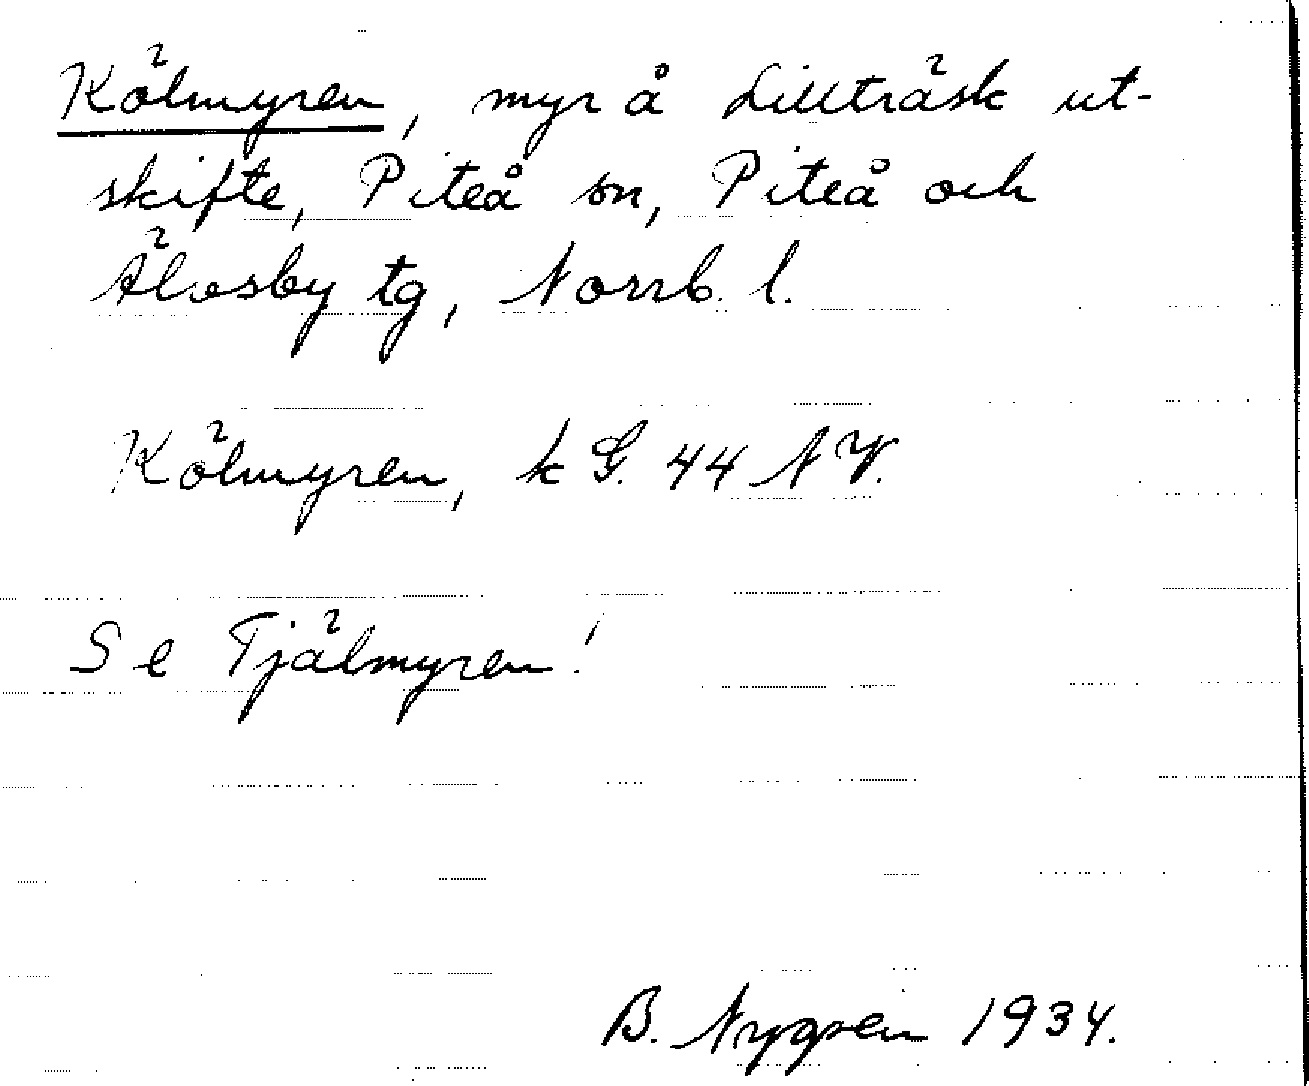 Kölmyren, myr å Lillträsk ut-
skifte, Piteå sn, Piteå och
Älvsby tg, Norrb. l.
Kölmyren, k G. 44 N V.
Se Tjälmyren!
B. Nygren 1934.